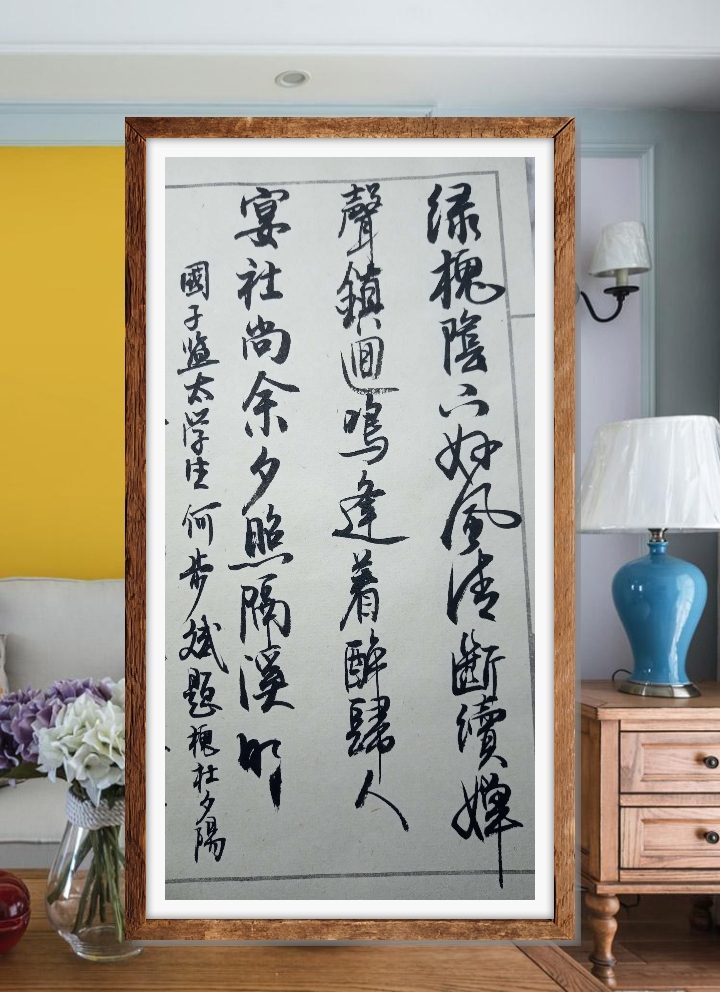 绿槐陰下好風清斷續嬋
聲鎖迴鳴逢着醉歸人
宴社尚余夕照隔溪明
國子监太学生何步斌題槐社夕陽